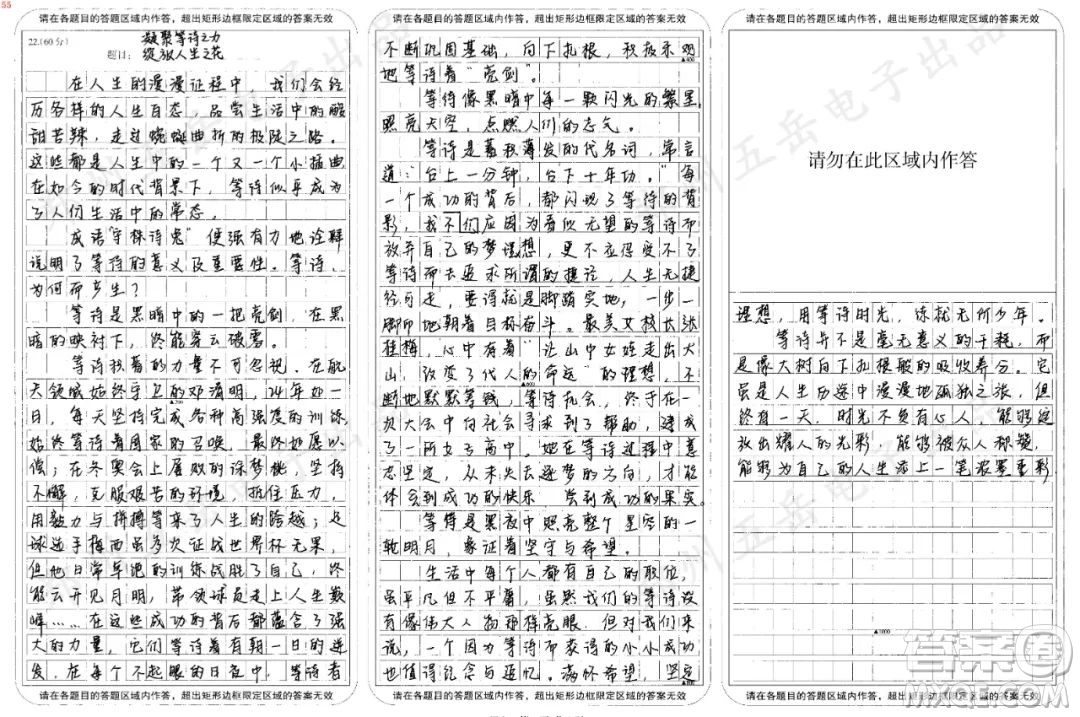 55
请在各题目的答题区域内作答，超出矩形边框限定区域的答案无效
22.(60分)
题目：
凝聚等待之力
绽放人生之花
在人生的漫漫征程中 我们会经
历各样的人生百态，品尝生活中的酸
甜苦辣，走过蜿蜒曲折的极陡之路。
这些都是人生中的一个又一个小插曲
在如今的时代背景下，等待似乎成为
了人们生活中的常态。
成语"守株待兔"便强有力地诠释
说明了等待的意义及重要性。等待，
为何而产生？
等待是黑暗中的一把亮剑，在黑
暗的映衬下，终能穿云破雾。
等待执着的力量不可忽视。在航
天领域始终守卫的邓清明，24年如一
日，每天坚持完成各种高强度的训练
始终等待着国家的召唤，最终如愿以
偿；在冬奥会上屡败的徐梦桃，坚持
不懈，克服艰苦的环境，抵住压力，
用毅力与拼搏等来了人生的跨越；足
球选手梅西虽多次征战世界杯无果，
但他日常牢记的训练战胜了自己，终
能云开见月明，带领球员走上人生巅
峰……在这些成功的背后都蕴含了强
大的力量，它们等待着有朝一日的迸
发，在每个不起眼的日夜中，等待者
请在各题目的答题区域内作答，超出矩形边框限定区域的答案无效
请在各题目的答题区域内作答，超出矩形边框限定区域的答案无效
不断巩固基础，向下扎根，积极乐观
地等待着"亮剑"。
等待像黑暗中每一颗闪光的繁星
照亮天空，点燃人们的志气。
等待是蓄积薄发的代名词，常言
道："台上一分钟，台下十年功。"每
一个成功的背后，都闪现了等待的背
影，我们不应因为看似无望的等待而
放弃自己的梦理想，更不应得受不了
等待而去追求所谓的捷径，人生无捷
径可走，要得就是脚踏实地，一步一
脚印地朝着目标奋斗。最美女校长张
桂梅，心中有着"让山中女娃走出大
山，改变了代人的命运"的理想，不
断地默默筹钱，等待机会，终于在一
次大会中向社会寻求到了帮助，建成
了一所女子高中。她在等待过程中意
志坚定，从未失去逐梦的方向，才能
体会到成功的快乐 尝到成功的果实。
等待是黑夜中照亮整个星空的一
轮明月，象征着坚守与希望。
生活中每个人都有自己的职位，
虽平凡但不平庸，虽然我们的等待没
有像伟大人物那样亮眼，但对我们来
说，一个因为等待而获得的小小成功
也值得纪念与追忆。满怀希望，坚定
请在各题目的答题区域内作答，超出矩形边框限定区域的答案无效
请在各题目的答题区域内作答，超出矩形边框限定区域的答案无效
请勿在此区域内作答
理想，用等待时光，练就无何少年。
等待并不是毫无意义的干耗，而
是像大树向下扎根般的吸收养分。它
虽是人生历途中漫漫地孤独之旅，但
终有一天，时光不负有心人，能够绽
放出耀人的光彩 能够被众人称赞，
能够为自己的人生添上一笔浓墨重彩
▲1000
答案圈
请在各题目的答题区域内作答，超出矩形边框限定区域的答案无效